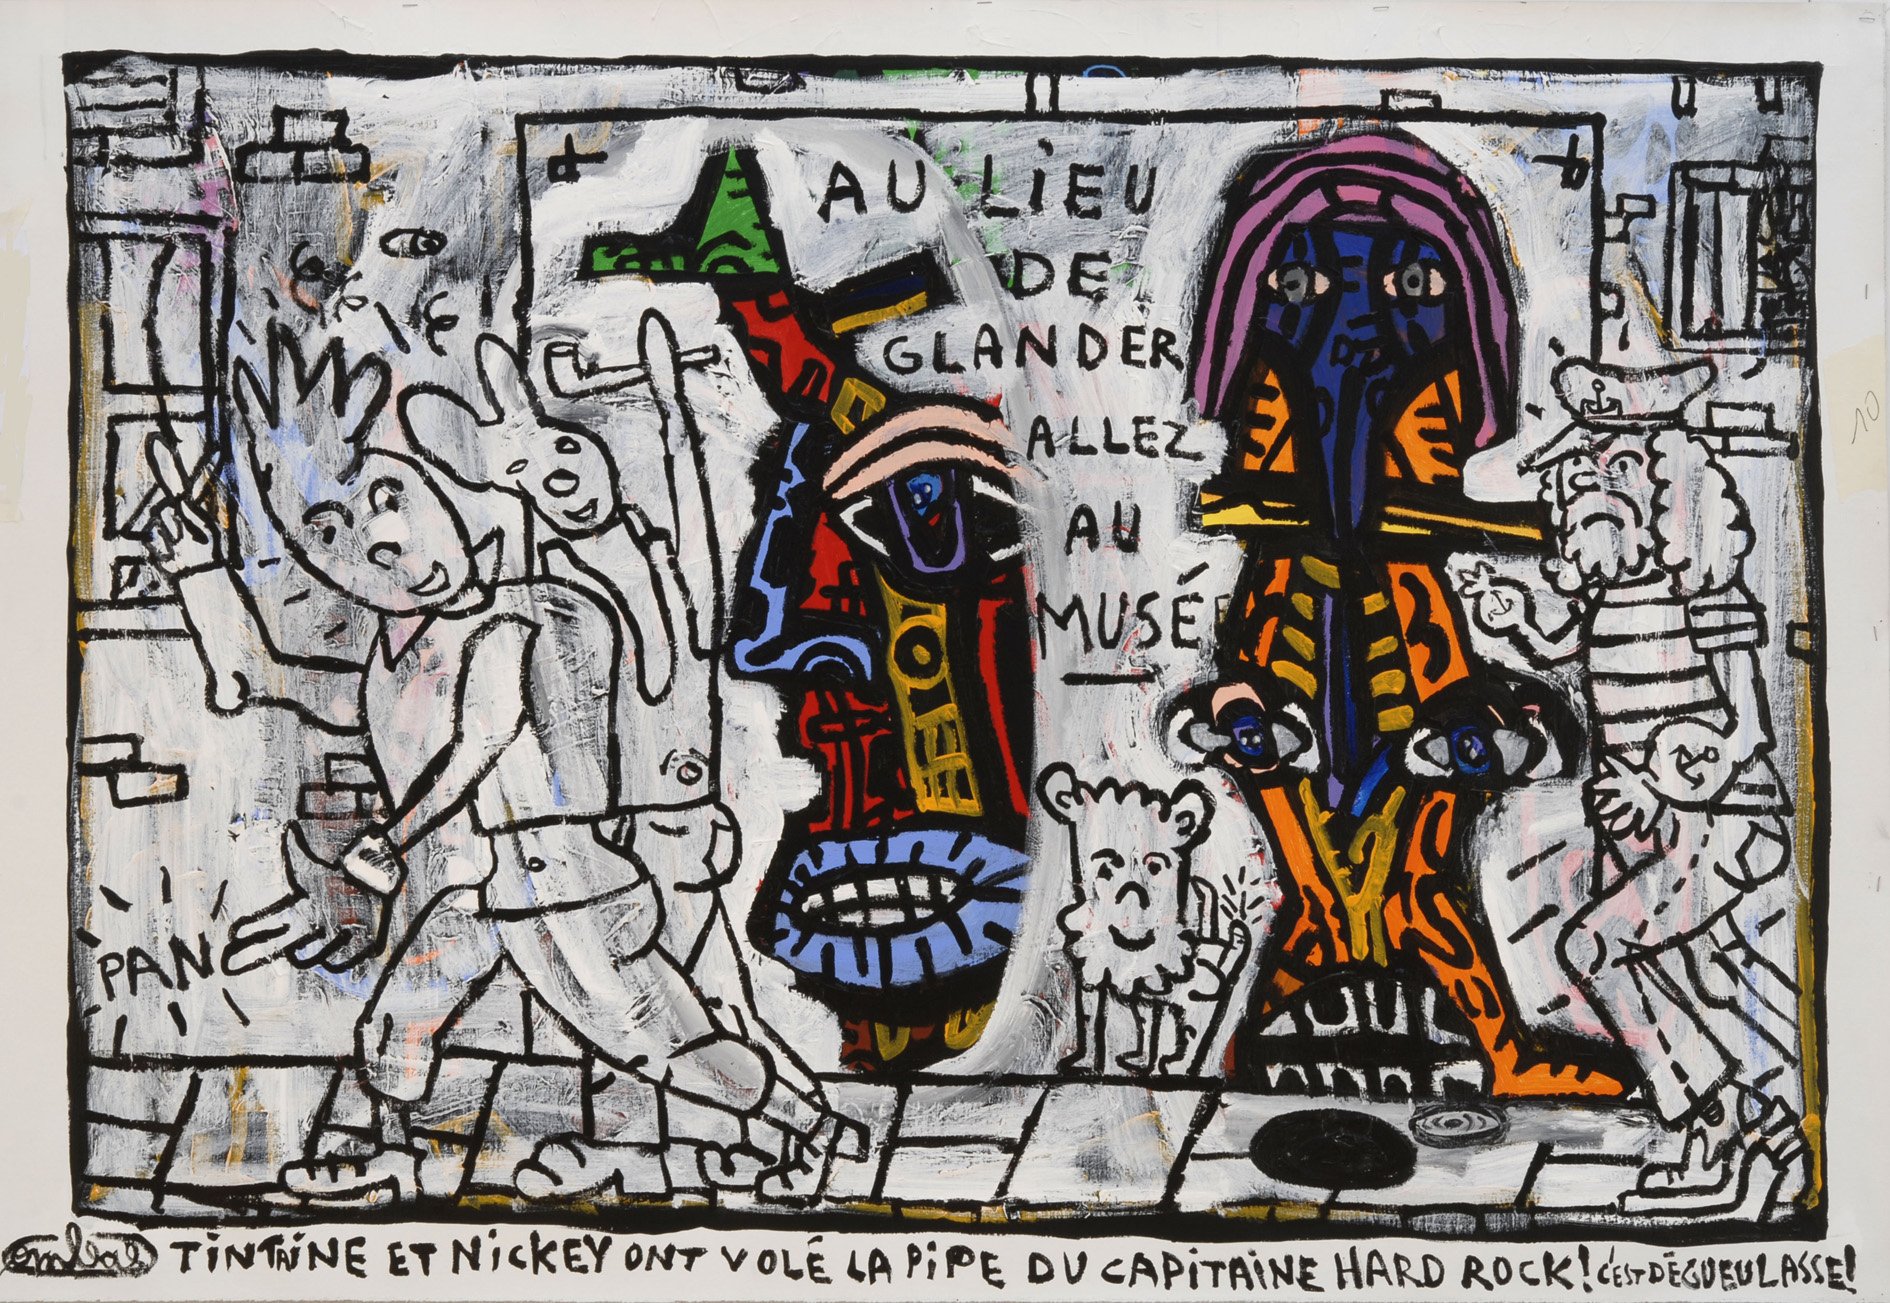 AU LIEU
DE
GLANDER
ALLEZ
AU
MUSÉE
PAN
10
combas TINTAINE ET NICKEY ONT VOLÉ LA PIPE DU CAPITAINE HARD ROCK! C'EST DÉGUEULASSE!